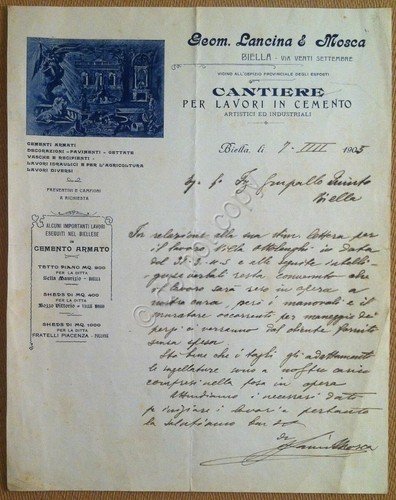 Geom. Lancina & Mosca
BIELLA - VIA VENTI SETTEMBRE
VICINO ALL'OSPIZIO PROVINCIALE DEGLI ESPOSTI
CANTIERE
PER LAVORI IN CEMENTO
ARTISTICI ED INDUSTRIALI
CEMENTI ARMATI
DECORAZIONI - PAVIMENTI - GETTATE
VASCHE E RECIPIENTI
LAVORI IDRAULICI E PER L'AGRICOLTURA
LAVORI DIVERSI
PREVENTIVI E CAMPIONI
A RICHIESTA
ALCUNI IMPORTANTI LAVORI
ESEGUITI NEL BIELLESE
IN
CEMENTO ARMATO
TETTO PIANO MQ. 800
PER LA DITTA
Sella Maurizio - BIELLA
SHEDS DI MQ. 400
PER LA DITTA
SHEDS DI MQ. 1000
PER LA DITTA
FRATELLI PIACENZA - POLLONE
Biella, li 1905
Biella
In relazione alla sua lettera per
il lavoro Villa in data
del e alle
verbali resta convenuto che
il lavoro sarà reso in opera a
nostra cura però i manovali e il
muratore occorrenti per maneggio dei
pezzi verranno dal cliente forniti
senza spesa
Sta bene che i tagli gli adattamenti
le suggellature sono a nostro carico
compresi nella posa in opera
Attendiamo i necessari dati
per iniziare i lavori e pertanto
la salutiamo
Mosca